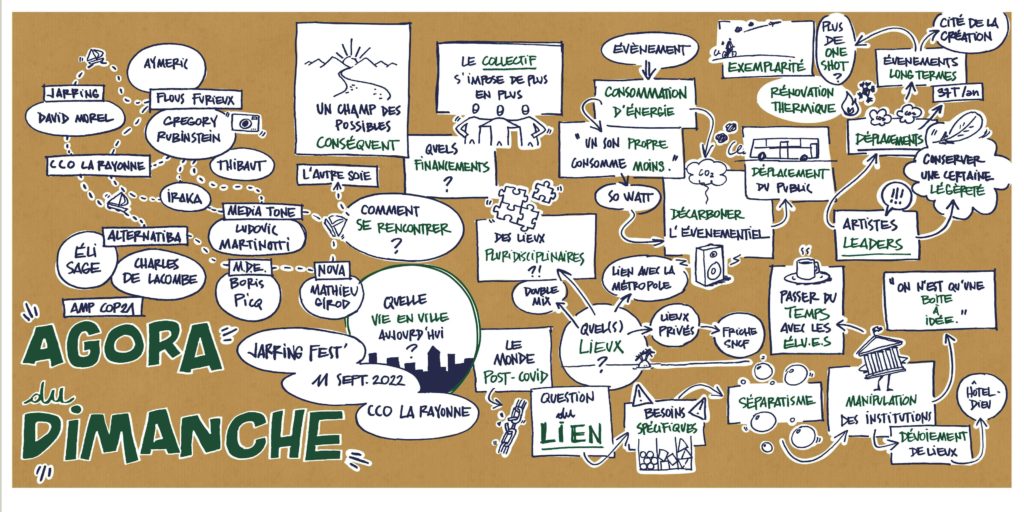 AYMERIC
JARRING
DAVID MOREL
FLOUS FURIEUX
GREGORY
RUBINSTEIN
CCO LA RAYONNE
THIBAUT
IRAKA
MEDIA TONE
LUDOVIC
MARTINOTTI
ALTERNATIBA
ÉLI
SAGE
CHARLES
DE LACOMBE
AMP COP21
M.D.E.
BORIS
PICQ
NOVA
MATHIEU
GIROD
L'AUTRE SOIE
UN CHAMP DES
POSSIBLES
CONSÉQUENT
LE COLLECTIF
S'IMPOSE DE PLUS
EN PLUS
QUELS
FINANCEMENTS
?
COMMENT
SE RENCONTRER
?
AGORA
du
DIMANCHE
JARRING FEST'
11 SEPT. 2022
CCO LA RAYONNE
QUELLE
VIE EN VILLE
AUJOURD'HUI
?
LE
MONDE
POST-COVID
QUESTION
du
LIEN
DES LIEUX
PLURIDISCIPLINAIRES
?!
DOUBLE
MIX
QUEL(S)
LIEUX
?
LIEN AVEC LA
MÉTROPOLE
LIEUX
PRIVÉS
FRICHE
SNCF
BESOINS
SPÉCIFIQUES
SÉPARATISME
ÉVÈNEMENT
CONSOMMATION
D'ÉNERGIE
"UN SON PROPRE
CONSOMME MOINS."
SO WATT
CO2
DÉCARBONER
L'ÉVENEMENTIEL
DÉPLACEMENT
DU PUBLIC
EXEMPLARITÉ
PLUS
DE
ONE
SHOT?
RÉNOVATION
THERMIQUE
ÉVENEMENTS
LONG TERMES
CITÉ DE LA
CRÉATION
DÉPLACEMENTS
CONSERVER
UNE CERTAINE
LÉGÈRETÉ
!!!
ARTISTES
LEADERS
PASSER DU
TEMPS
AVEC LES
ÉLU.E.S
"ON N'EST QU'UNE
BOÎTE
À
IDÉE."
MANIPULATION
DES INSTITUTIONS
DÉVOIEMENT
DE LIEUX
HÔTEL-
DIEU